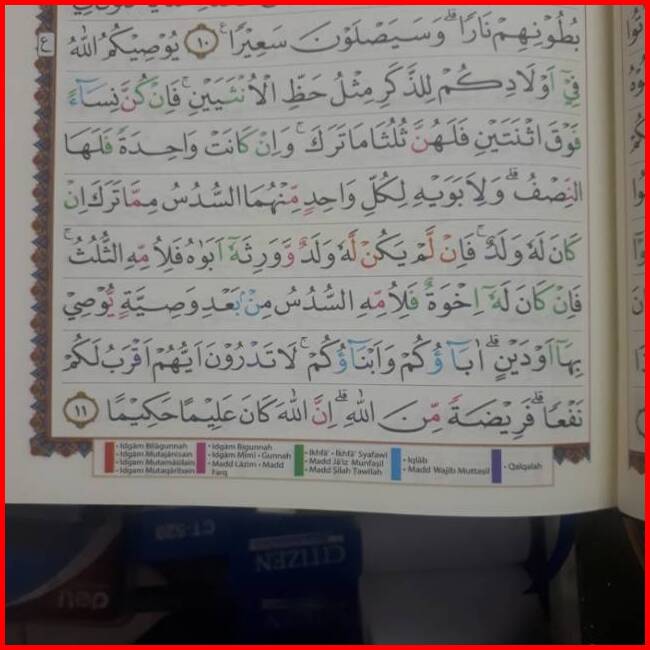 بُطُوْنِهِمْ نَارًاۗ وَسَيَصْلَوْنَ سَعِيْرًا ࣖ ١٠ يُوْصِيْكُمُ اللّٰهُ
ع
فِيْٓ اَوْلَادِكُمْ لِلذَّكَرِ مِثْلُ حَظِّ الْاُنْثَيَيْنِۚ فَاِنْ كُنَّ نِسَاۤءً
فَوْقَ اثْنَتَيْنِ فَلَهُنَّ ثُلُثَا مَا تَرَكَۚ وَاِنْ كَانَتْ وَاحِدَةً فَلَهَا
النِّصْفُۗ وَلِاَبَوَيْهِ لِكُلِّ وَاحِدٍ مِّنْهُمَا السُّدُسُ مِمَّا تَرَكَ اِنْ
كَانَ لَهٗ وَلَدٌۚ فَاِنْ لَّمْ يَكُنْ لَّهٗ وَلَدٌ وَّوَرِثَهٗٓ اَبَوٰهُ فَلِاُمِّهِ الثُّلُثُۚ
فَاِنْ كَانَ لَهٗٓ اِخْوَةٌ فَلِاُمِّهِ السُّدُسُ مِنْۢ بَعْدِ وَصِيَّةٍ يُّوْصِيْ
بِهَآ اَوْ دَيْنٍۗ اٰبَاۤؤُكُمْ وَاَبْنَاۤؤُكُمْۚ لَا تَدْرُوْنَ اَيُّهُمْ اَقْرَبُ لَكُمْ
نَفْعًاۗ فَرِيْضَةً مِّنَ اللّٰهِۗ اِنَّ اللّٰهَ كَانَ عَلِيْمًا حَكِيْمًا ١١
• Idgām Bilāgunnah
• Idgām Mutajānisain
• Idgām Mutamāṡilain
• Idgām Mutaqāribain
• Idgām Bigunnah
• Idgām Mīmī • Gunnah
• Madd Lāzim • Madd Farq
• Ikhfā' • Ikhfā' Syafawī
• Madd Jā'iz Munfaṣil
• Madd Ṣilah Ṭawīlah
• Iqlāb
• Madd Wajib Muttaṣil
• Qalqalah
CT-520
CITIZEN
deli